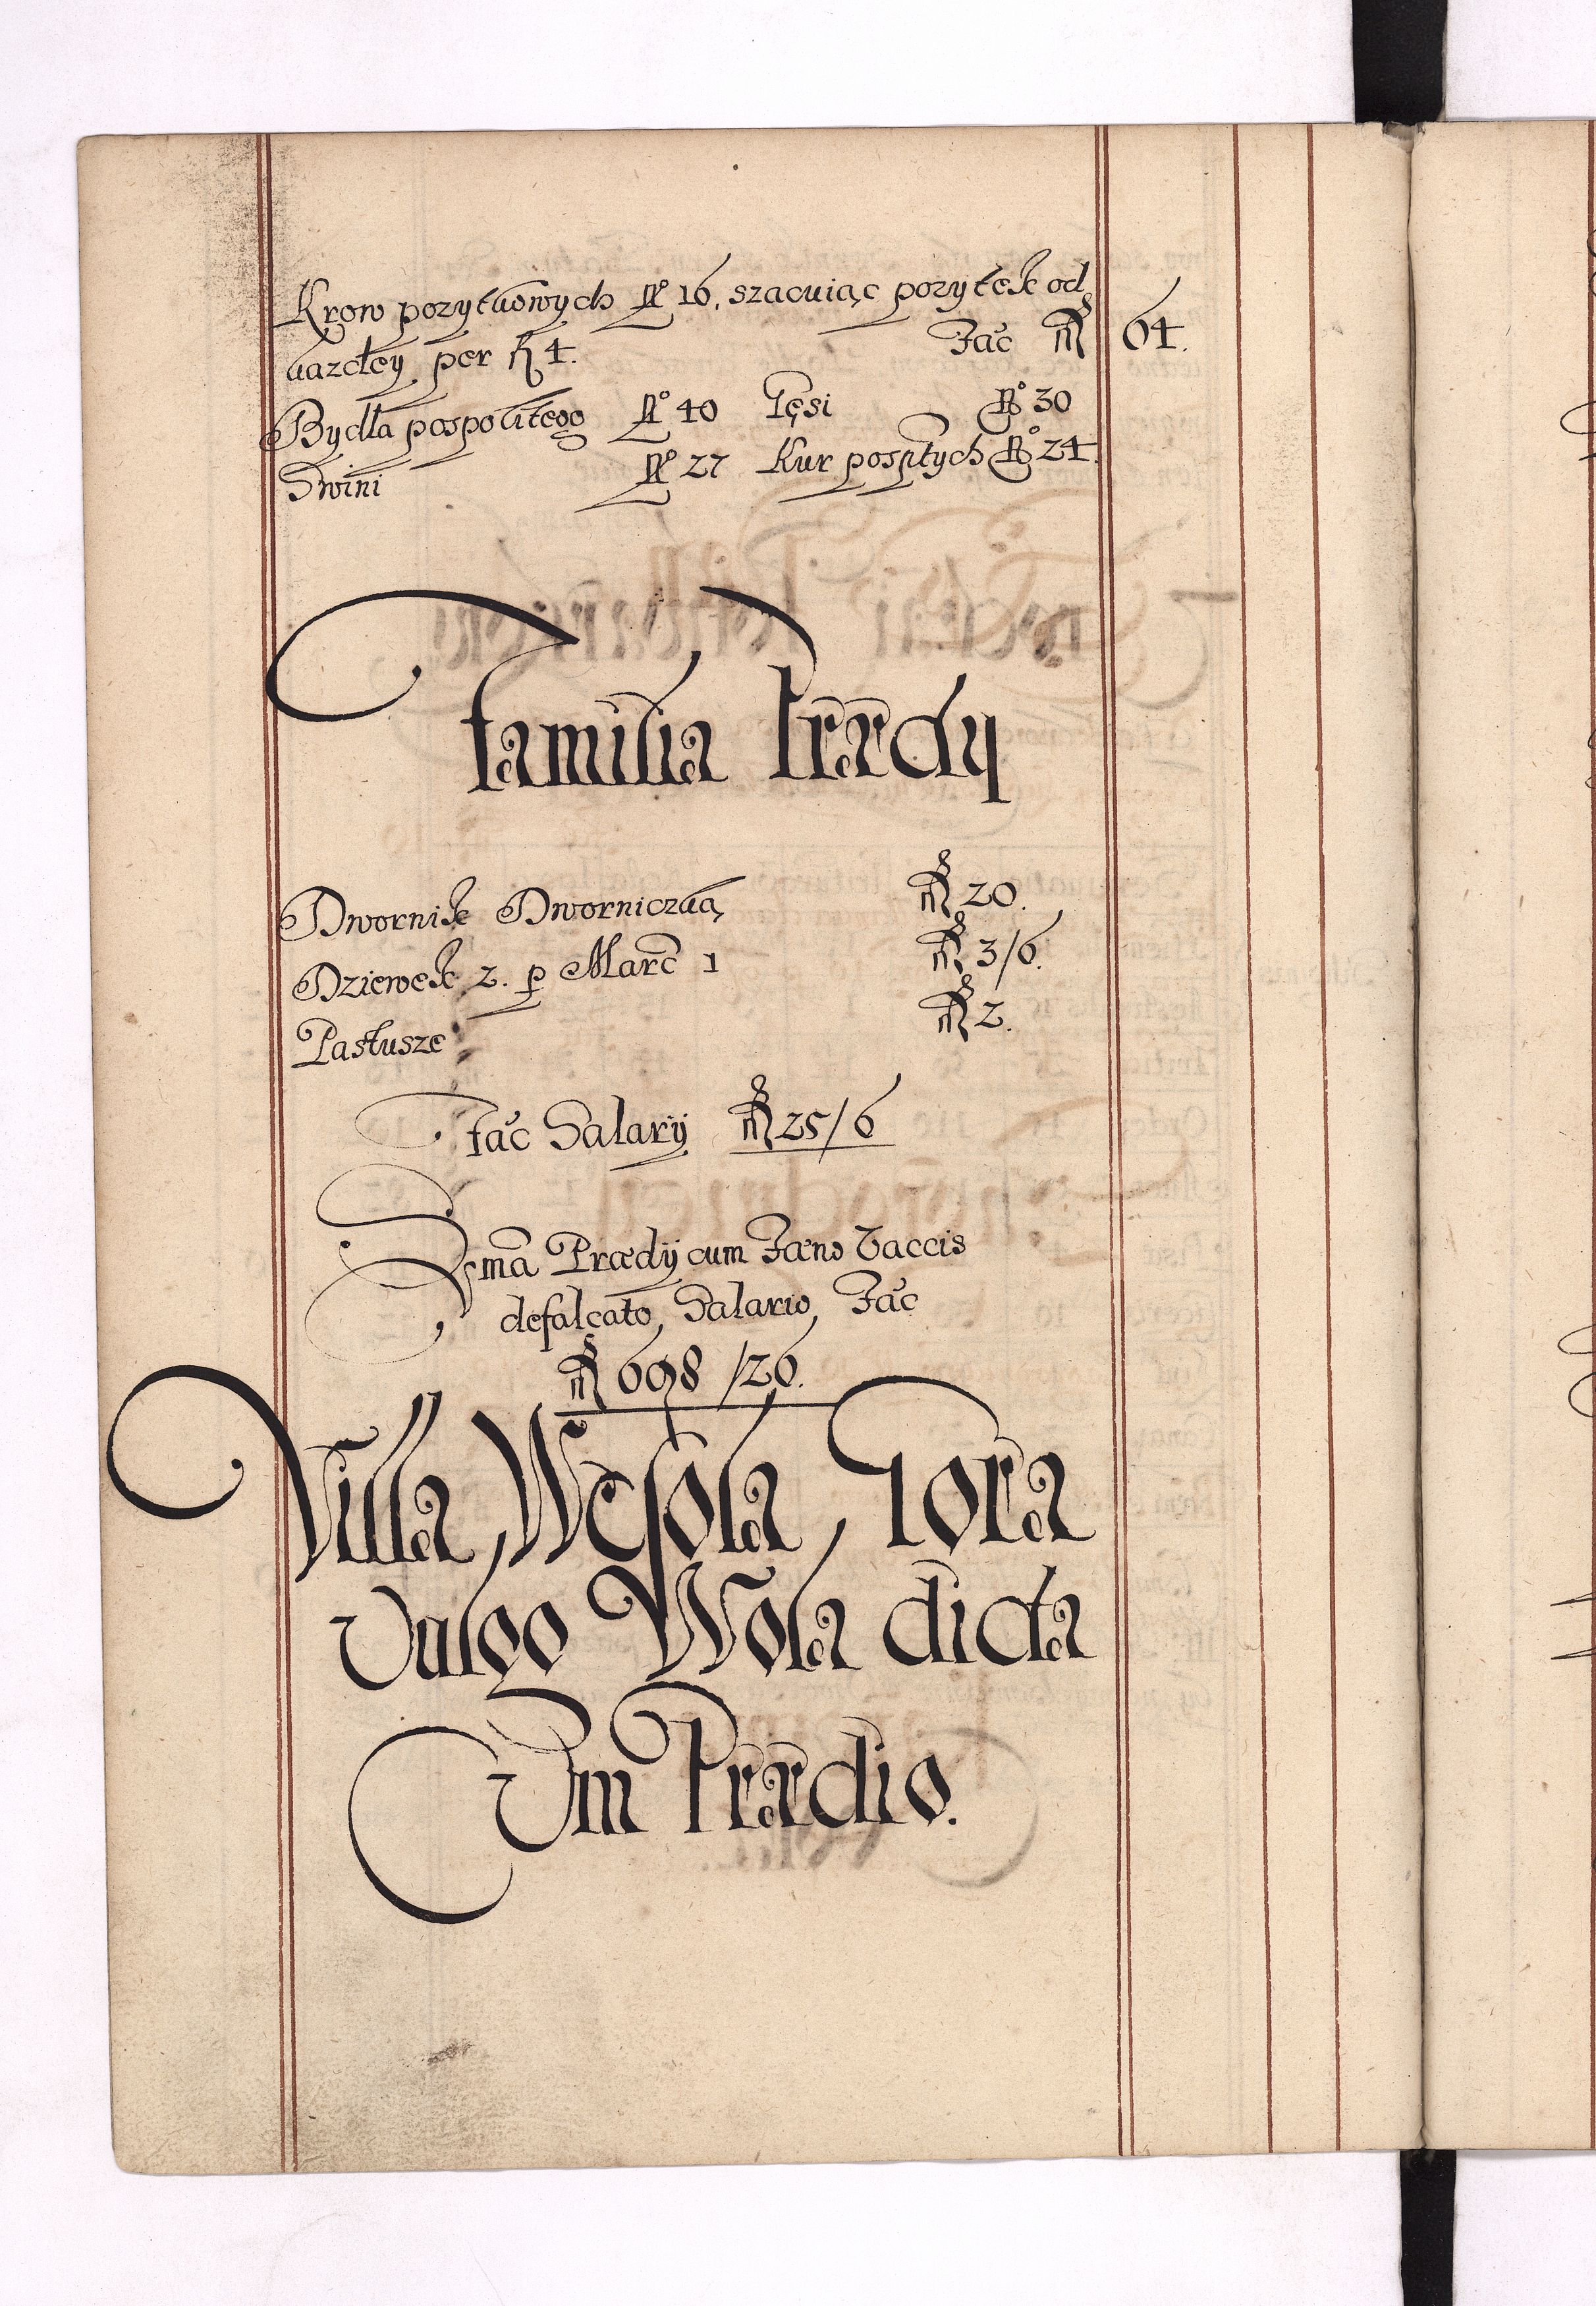 Krow pozytkowych No 16, szacuiąc pozytek od
kazdey per fl 4. Fac fl 64.
Bydła pospolitego No 40 Gęsi No 30
Swini No 27 Kur pospłtych No 24.
Familia Prædy
Dwornik Dworniczką fl 20.
Dziewek 2. p Marc 1 fl 3/6.
Pastusze fl 2.
fac Salarÿ fl 25/6
Sma Prædÿ cum Fæno Vaccis
defalcato Salario Fac
fl 698 /26.
Villa Wesoła Gora
Vulgo Wola dicta
Cum Prædio.